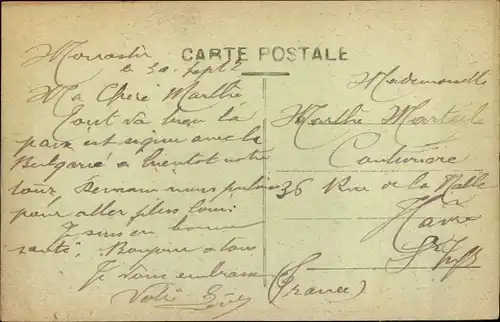 CARTE POSTALE
Monastir
le 30 Sept
Ma Chère Marthe
Tout va bien la
paix est signé avec la
Bulgarie a bientot notre
tour, Demain nous partons
pour aller plus loin.
Je suis en bonne
santé. Bonjour a tous
Je vous embrasse
Mademoiselle
Marthe
Couturière
36 Rue de la Halle
Havre
(France)